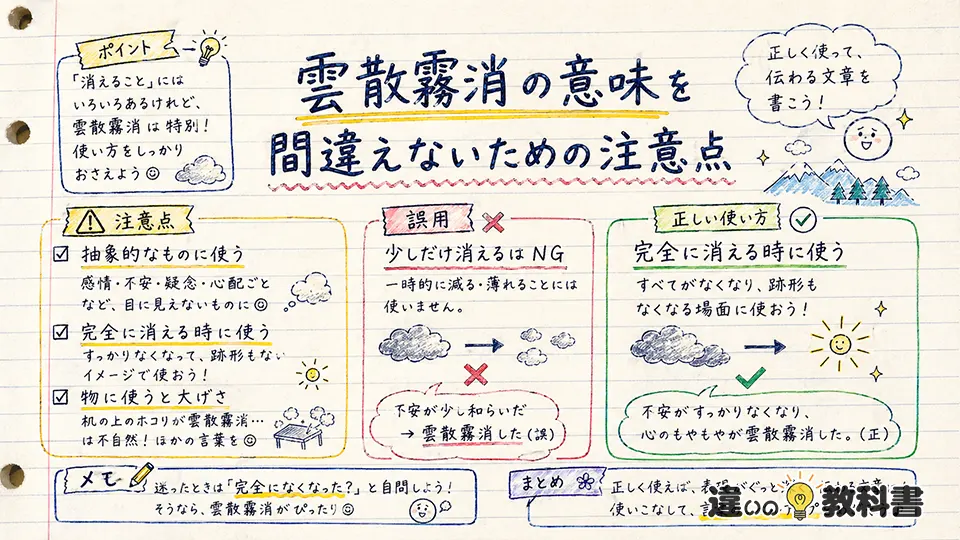 ポイント
「消えること」には
いろいろあるけれど、
雲散霧消 は 特別！
使い方をしっかり
おさえよう
雲散霧消の意味を
間違えないための注意点
正しく使って、
伝わる文章を
書こう！
注意点
抽象的なものに使う
感情・不安・疑念・心配ごと
など、目に見えないものに
完全に消える時に使う
すっかりなくなって、跡形もない
イメージで使おう！
物に使うと大げさ
机の上のホコリが雲散霧消…
は不自然！ほかの言葉を
誤用
少しだけ消えるは NG
一時的に減る・薄れることには
使いません。
不安が少し和らいだ
→ 雲散霧消した (誤)
正しい使い方
完全に消える時に使う
すべてがなくなり、跡形も
なくなる場面に使おう！
不安がすっかりなくなり、
心のもやもやが雲散霧消した。(正)
メモ
迷ったときは「完全になくなった？」と自問しよう！
そうなら、雲散霧消がぴったり
まとめ
正しく使えば、表現がぐっと
使いこなして、
違いの教科書